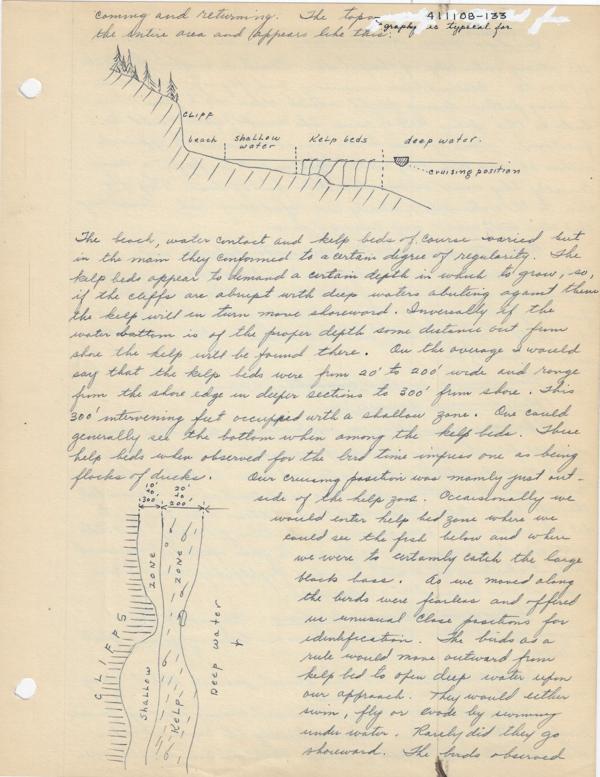 coming and returning. The topo-
411108-133
graphy is typical for
the entire area and appears like this.
CLIFF
beach
shallow water
Kelp beds
deep water.
cruising position
The beach, water contact and kelp beds of course varied but
in the main they conformed to a certain degree of regularity. The
kelp beds appear to demand a certain depth in which to grow, so,
if the cliffs are abrupt with deep waters abuting against them
the kelp will in turn move shoreward. Inversally if the
water bottom is of the proper depth some distance out from
shore the kelp will be found there. On the average I would
say that the kelp beds were from 20' to 200' wide and range
from the shore edge in deeper sections to 300' from shore. This
300' intervening feet occupied with a shallow zone. One could
generally see the bottom when among the kelp beds. These
kelp beds when observed for the first time impress one as being
flocks of ducks. Our cruising position was mainly just out-
side of the kelp zone. Occassionally we
would enter kelp bed zone where we
could see the fish below and where
we were to certainly catch the large
black bass. As we moved along
the birds were fearless and offered
us unusual close positions for
identification. The birds as a
rule would move outward from
kelp bed to open deep water upon
our approach. They would either
swim, fly or evade by swimming
under water. Rarely did they go
shoreward. The birds observed
0' to 300'
20' to 200'
CLIFFS
Shallow ZONE
KELP ZONE
Deep water